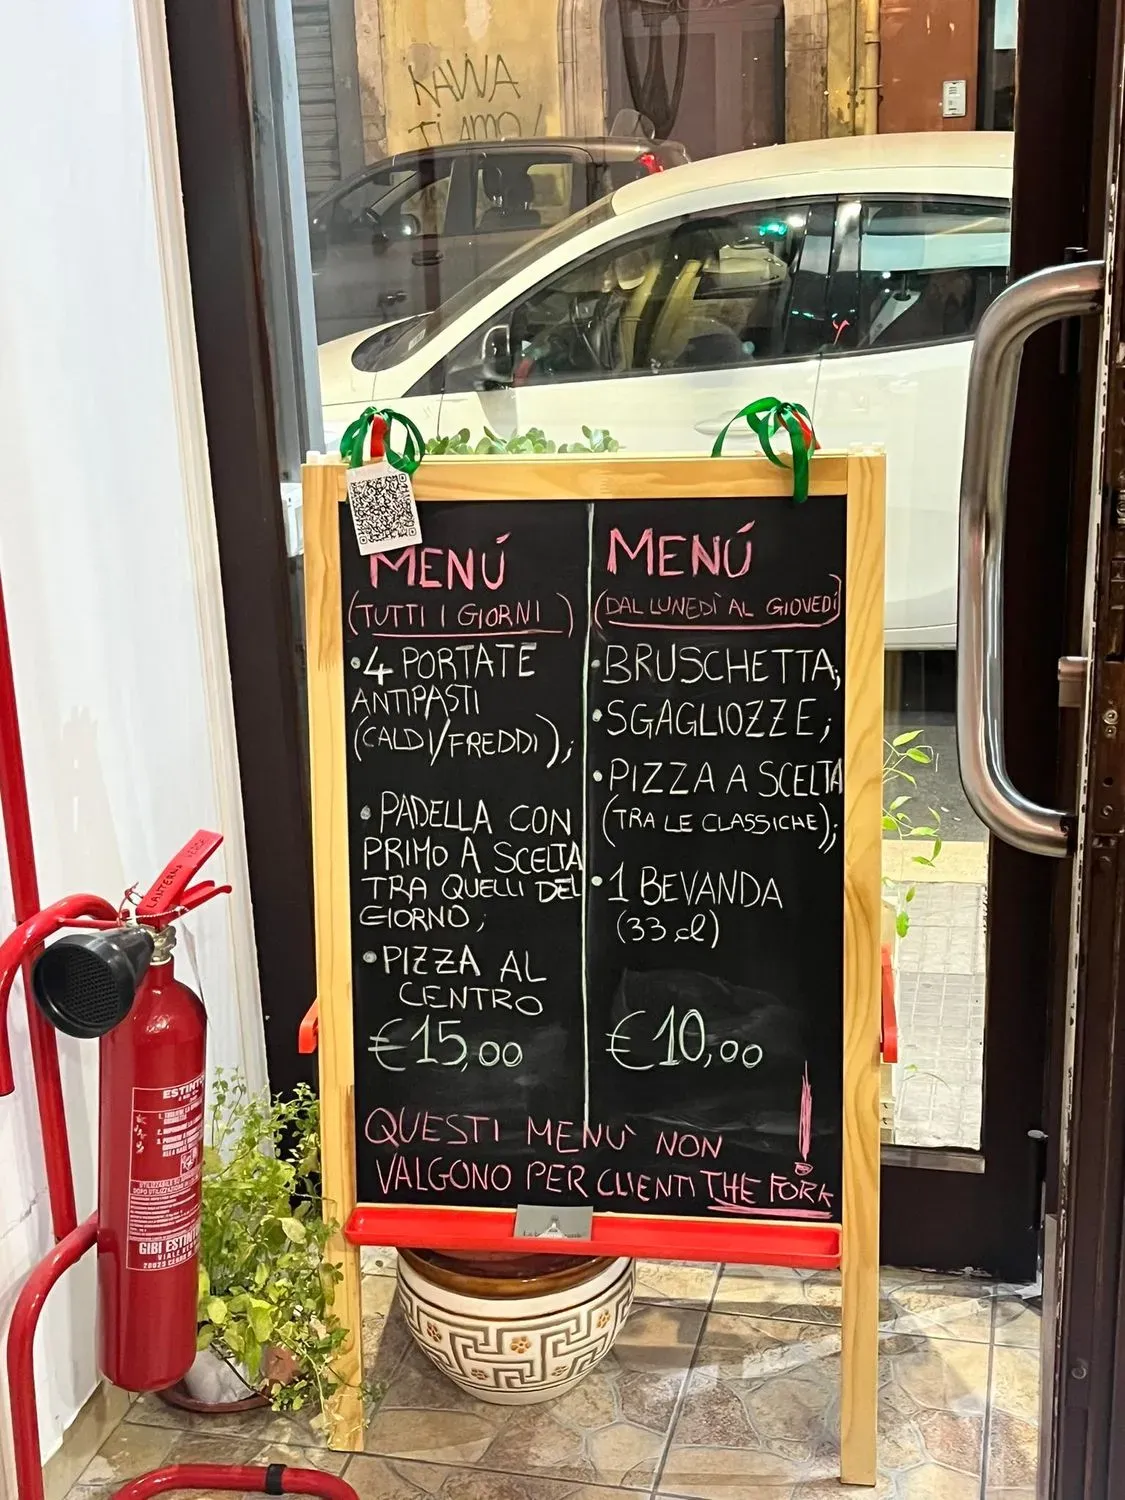 TI AMO!
MENÚ
(TUTTI I GIORNI)
• 4 PORTATE
ANTIPASTI
(CALDI/FREDDI);
• PADELLA CON
PRIMO A SCELTA
TRA QUELLI DEL
GIORNO;
• PIZZA AL
CENTRO
€15,00
MENÚ
(DAL LUNEDÌ AL GIOVEDÌ)
• BRUSCHETTA;
• SGAGLIOZZE;
• PIZZA A SCELTA
(TRA LE CLASSICHE);
• 1 BEVANDA
(33 cl)
€10,00
QUESTI MENÙ NON
VALGONO PER CLIENTI THE FORK!
LANTERNA
ESTINT
GIBI ESTINT